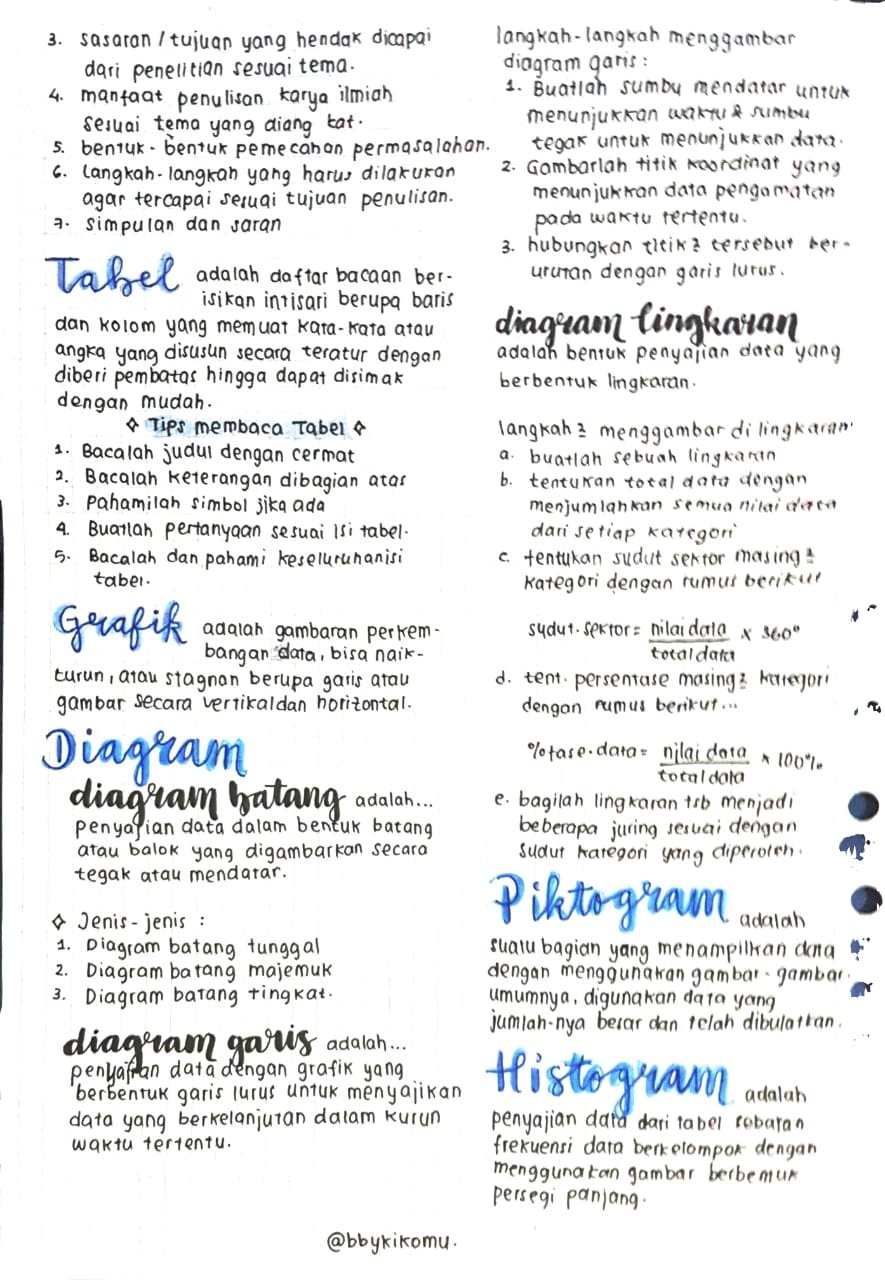 3. sasaran / tujuan yang hendak dicapai
dari penelitian sesuai tema.
4. manfaat penulisan karya ilmiah
sesuai tema yang diang kat.
5. bentuk - bentuk pemecahan permasalahan.
6. langkah-langkah yang harus dilakukan
agar tercapai sesuai tujuan penulisan.
7. simpulan dan saran
Tabel adalah daftar bacaan ber-
isikan intisari berupa baris
dan kolom yang memuat kata-kata atau
angka yang disusun secara teratur dengan
diberi pembatas hingga dapat disimak
dengan mudah.
Tips membaca Tabel
1. Bacalah judul dengan cermat
2. Bacalah keterangan dibagian atas
3. Pahamilah simbol jika ada
4. Buatlah pertanyaan sesuai isi tabel.
5. Bacalah dan pahami keseluruhanisi
tabel.
Grafik adalah gambaran perkem-
bangan data, bisa naik-
turun, atau stagnan berupa garis atau
gambar secara vertikaldan horizontal.
Diagram
diagram batang adalah...
penyajian data dalam bentuk batang
atau balok yang digambarkan secara
tegak atau mendatar.
Jenis-jenis :
1. Diagram batang tunggal
2. Diagram batang majemuk
3. Diagram batang tingkat.
diagram garis adalah...
penyajian data dengan grafik yang
berbentuk garis lurus untuk menyajikan
data yang berkelanjutan dalam kurun
waktu tertentu.
langkah-langkah menggambar
diagram garis :
1. Buatlah sumbu mendatar untuk
menunjukkan waktu & sumbu
tegak untuk menunjukkan data.
2. Gambarlah titik koordinat yang
menunjukkan data pengamatan
pada waktu tertentu.
3. hubungkan titik2 tersebut ber-
urutan dengan garis lurus.
diagram lingkaran
adalah bentuk penyajian data yang
berbentuk lingkaran.
langkah2 menggambar di lingkaran
a. buatlah sebuah lingkaran
b. tentukan total data dengan
menjumlahkan semua nilai data
dari setiap kategori
c. tentukan sudut sektor masing2
kategori dengan rumus berikut
sudut.sektor = nilai data x 360°
total data
d. tent. persentase masing2 kategori
dengan rumus berikut...
%tase.data = nilai data x 100%
total data
e. bagilah lingkaran tsb menjadi
beberapa juring sesuai dengan
sudut kategori yang diperoleh.
Piktogram adalah
suatu bagian yang menampilkan data
dengan menggunakan gambar-gambar.
umumnya, digunakan data yang
jumlah-nya besar dan telah dibulatkan.
Histogram adalah
penyajian data dari tabel sebaran
frekuensi data berkelompok dengan
menggunakan gambar berbentuk
persegi panjang.
@bbykikomu.